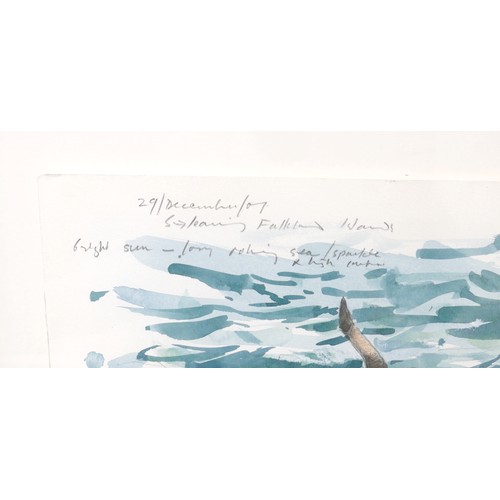 29/December/07
Falkland Islands
bright sun – long rolling sea/sparkle
& high